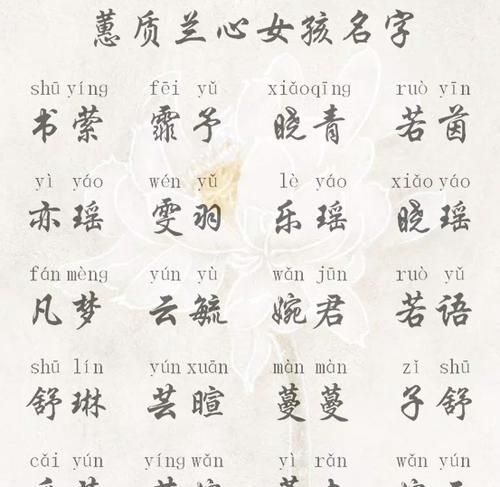 蕙质兰心女孩名字
shū yíng fēi yǔ xiǎo qīng ruò yīn
书萦 霏予 晓青 若茵
yì yáo wén yǔ lè yáo xiǎo yáo
亦瑶 雯羽 乐瑶 晓瑶
fán mèng yún yù wǎn jūn ruò yǔ
凡梦 云毓 婉君 若语
shū lín yún xuān màn màn zǐ shū
舒琳 芸暄 蔓蔓 子舒
cǎi yún yíng wǎn yì rǎn wǎn yún